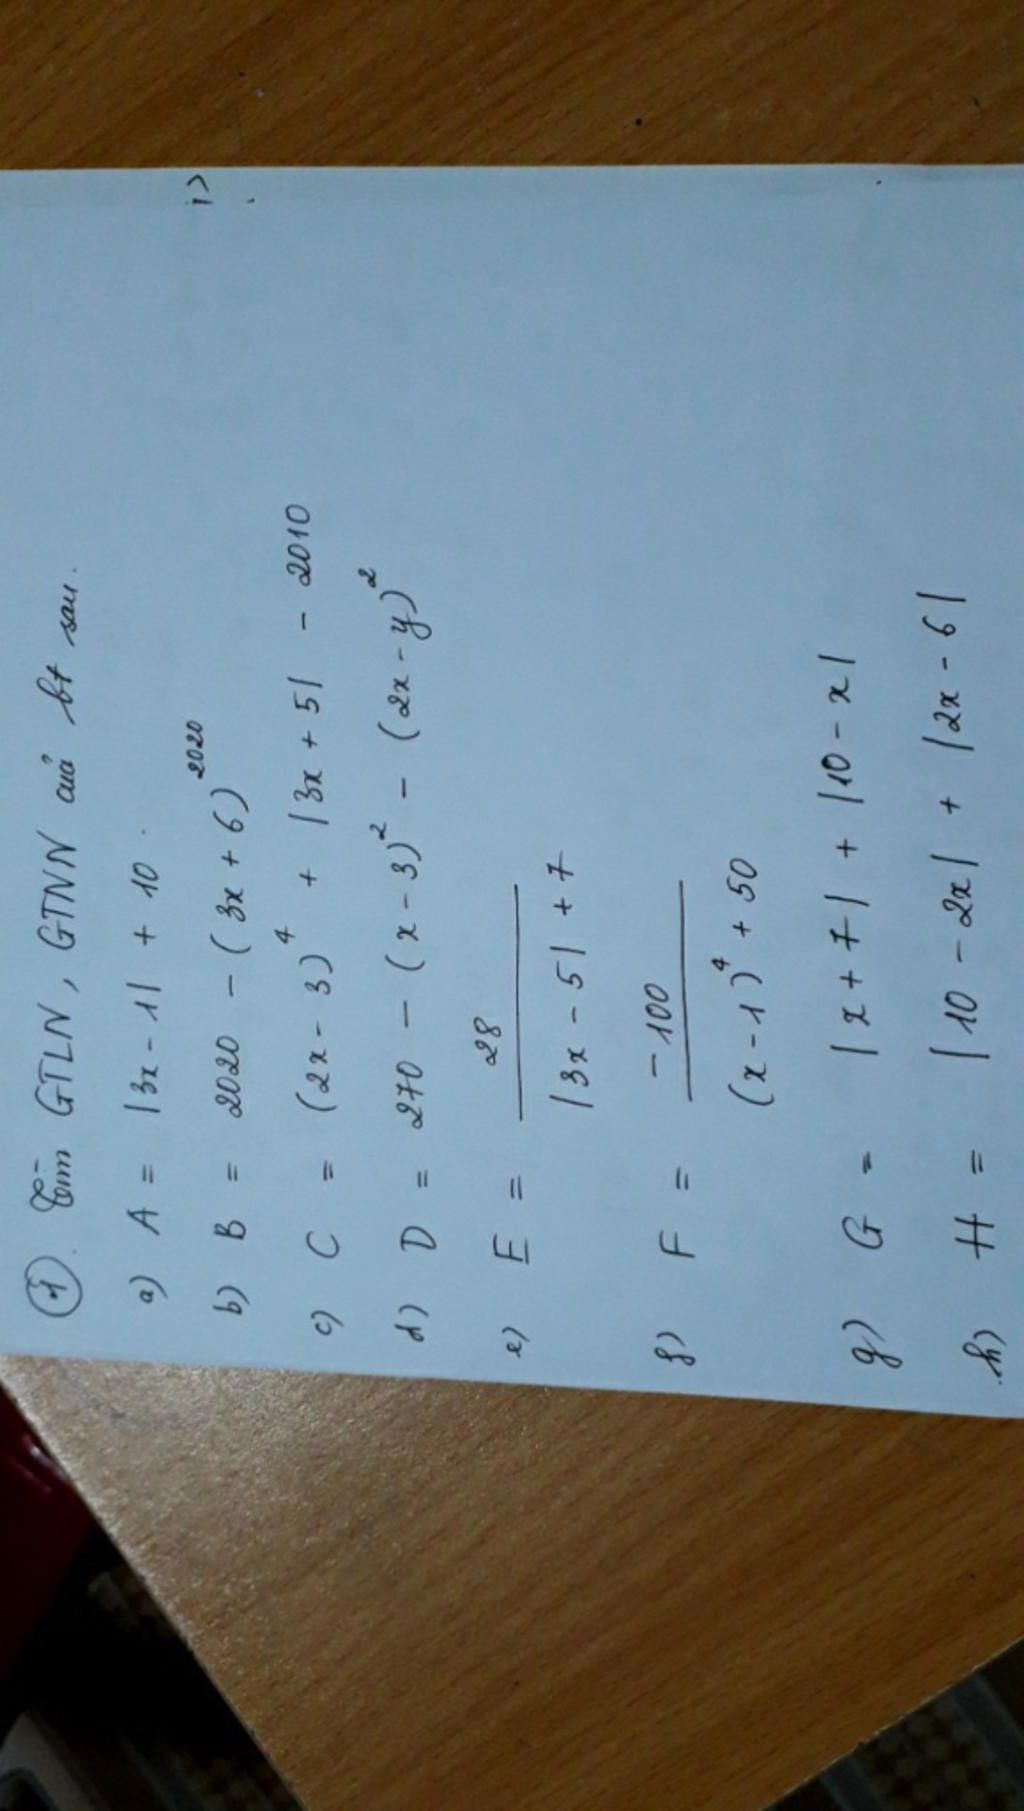 ① Tìm GTLN, GTNN của bt sau.
a) A = |3x - 1| + 10.
b) B = 2020 - (3x + 6)^2020
c) C = (2x - 3)^4 + |3x + 5| - 2010
d) D = 270 - (x - 3)^2 - (2x - y)^2
e) E = 28 / (|3x - 5| + 7)
f) F = -100 / ((x - 1)^4 + 50)
g) G = |x + 7| + |10 - x|
h) H = |10 - 2x| + |2x - 6|
i)